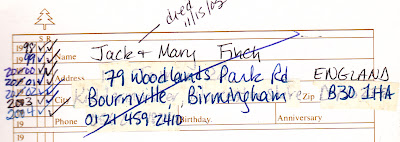 died 11/15/02
S R
1998 ✓✓ Name Jack & Mary Finch
1999 ✓✓
2000-01 ✓✓ Address 79 Woodlands Park Rd ENGLAND
2001-02 ✓✓ City Bournville, Birmingham Zip B30 1HA
2003 ✓✓
2004 ✓ Phone 0121 459 2410 Birthday. Anniversary